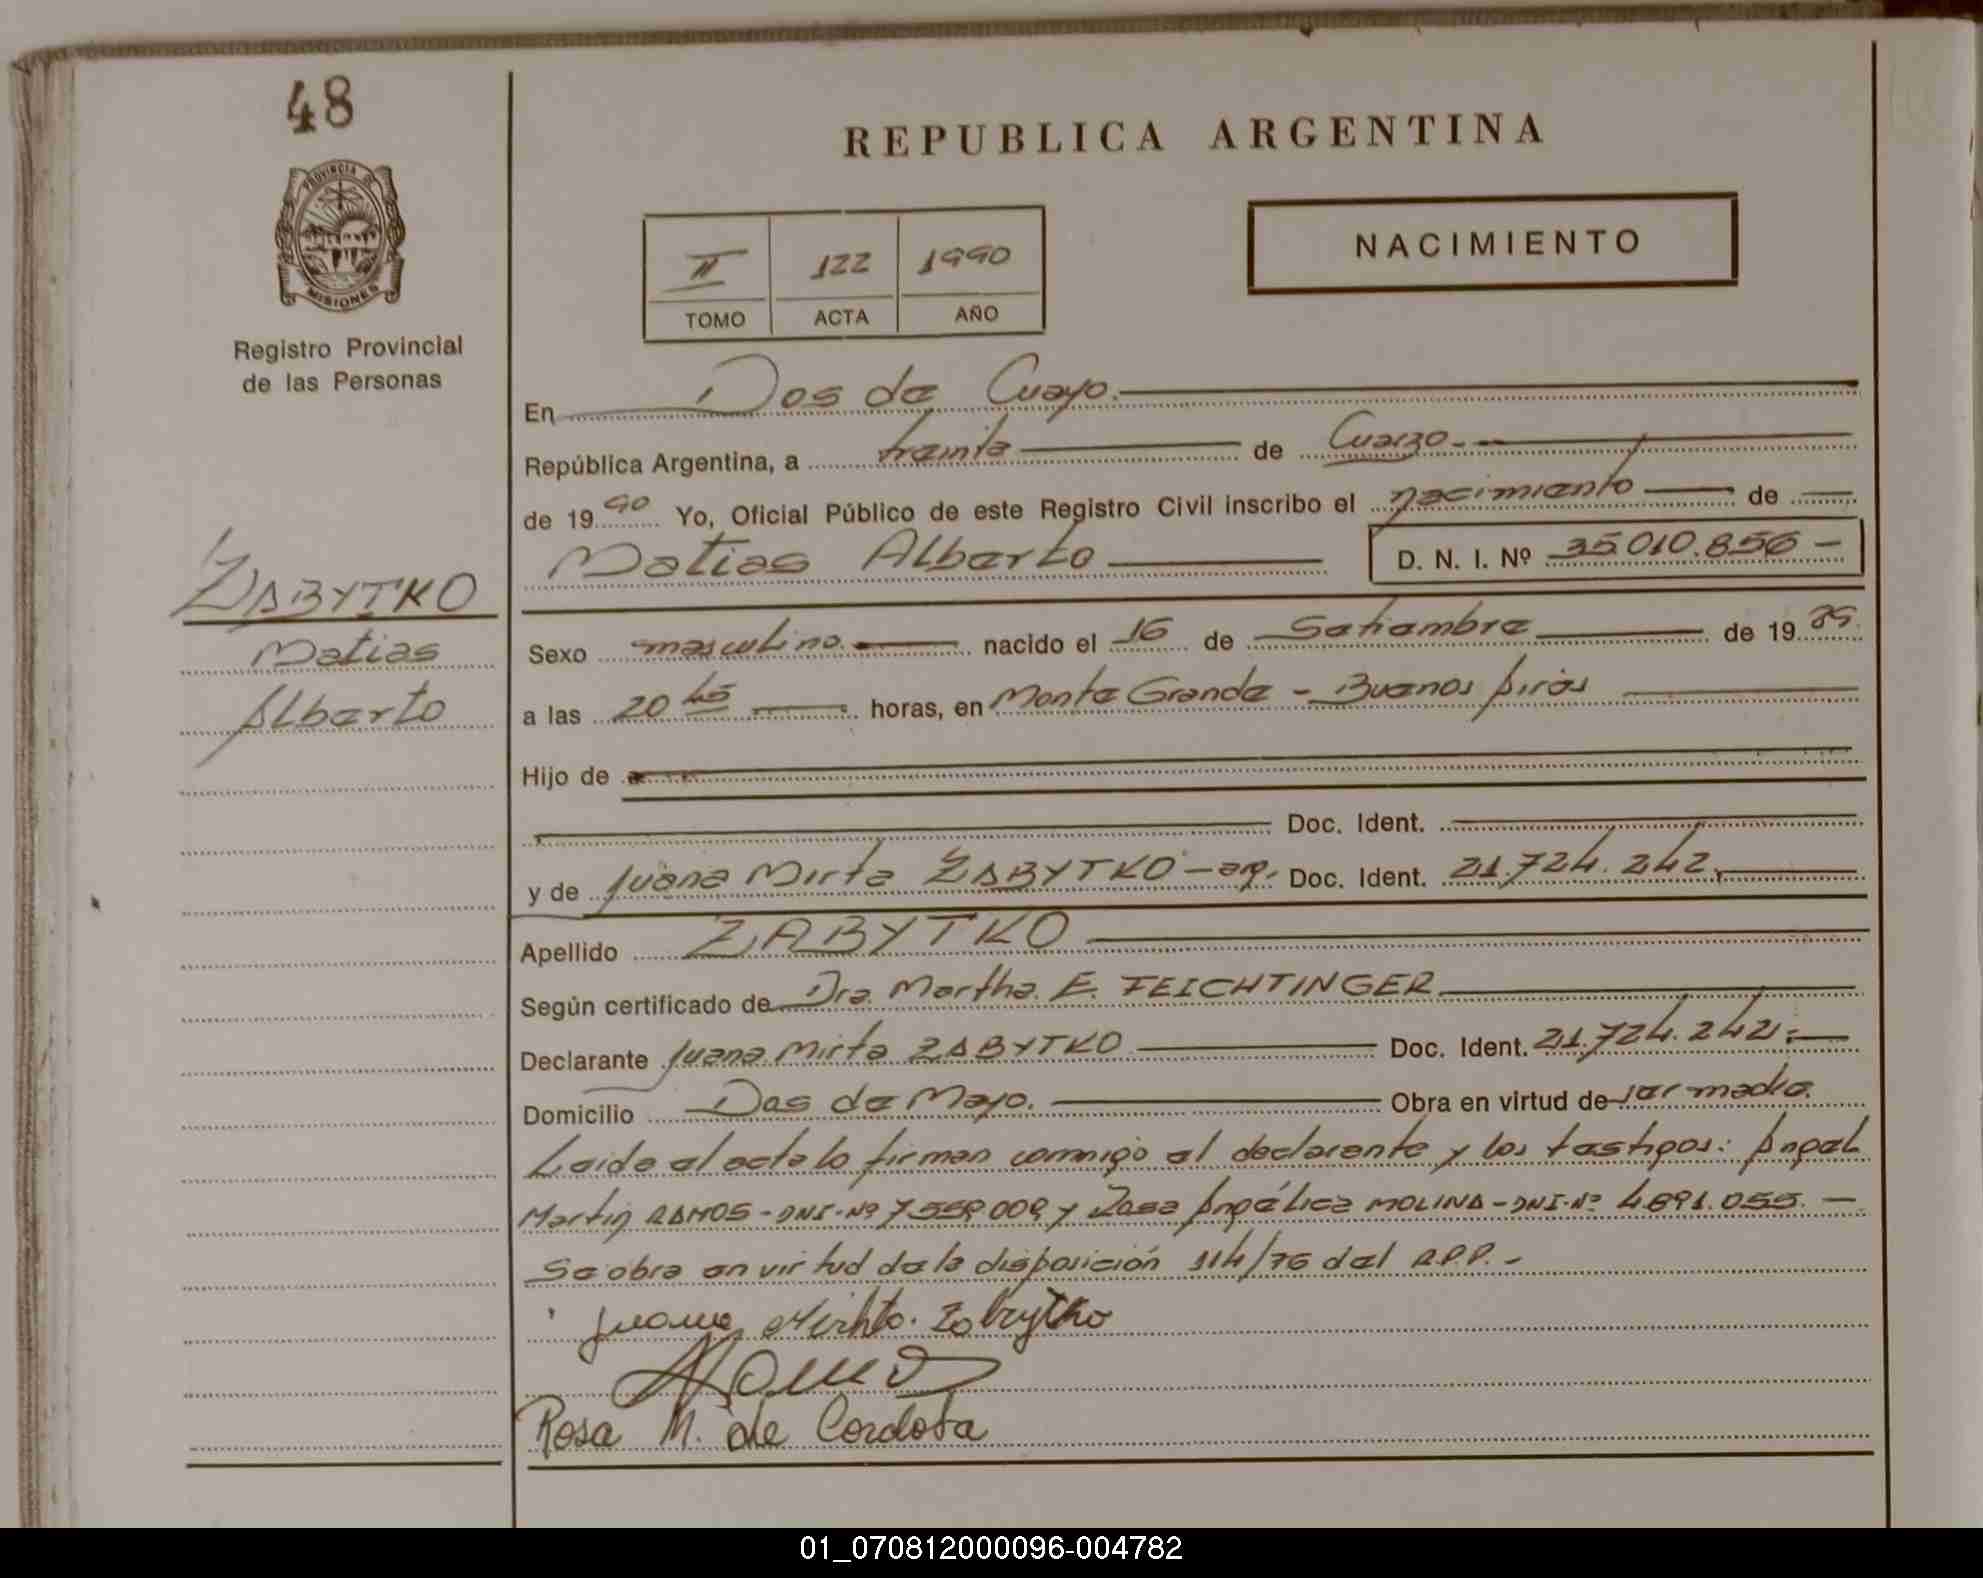 48
PROVINCIA DE
MISIONES
Registro Provincial
de las Personas
REPUBLICA ARGENTINA
NACIMIENTO
II 122 1990
TOMO ACTA AÑO
En Dos de Cuayo.
República Argentina, a treinta de Cuarzo.
de 1990 Yo, Oficial Público de este Registro Civil inscribo el nacimiento de
Matias Alberto D. N. I. Nº 35.010.856
ZABYTKO
Matias
Alberto
Sexo masculino. nacido el 16 de Setiembre de 1989.
a las 20 45 horas, en Monte Grande - Buenos Aires
Hijo de
Doc. Ident.
y de Juana Mirta ZABYTKO - ar. Doc. Ident. 21.724.242.
Apellido ZABYTKO
Según certificado de Dra. Martha E. FEICHTINGER
Declarante Juana Mirta ZABYTKO Doc. Ident. 21.724.242.
Domicilio Dos de Mayo. Obra en virtud de ser madre.
Leida el acta lo firman conmigo el declarante y los testigos: Angel
Martin RAMOS - DNI. Nº 7.559.009 y Rosa Angélica MOLINA - DNI. Nº 4.891.055. —
Se obra en virtud de la disposición 114/76 del R.P.P. -
Juana Mirhta. Zabytko
Rosa M. de Cordoba
01_070812000096-004782